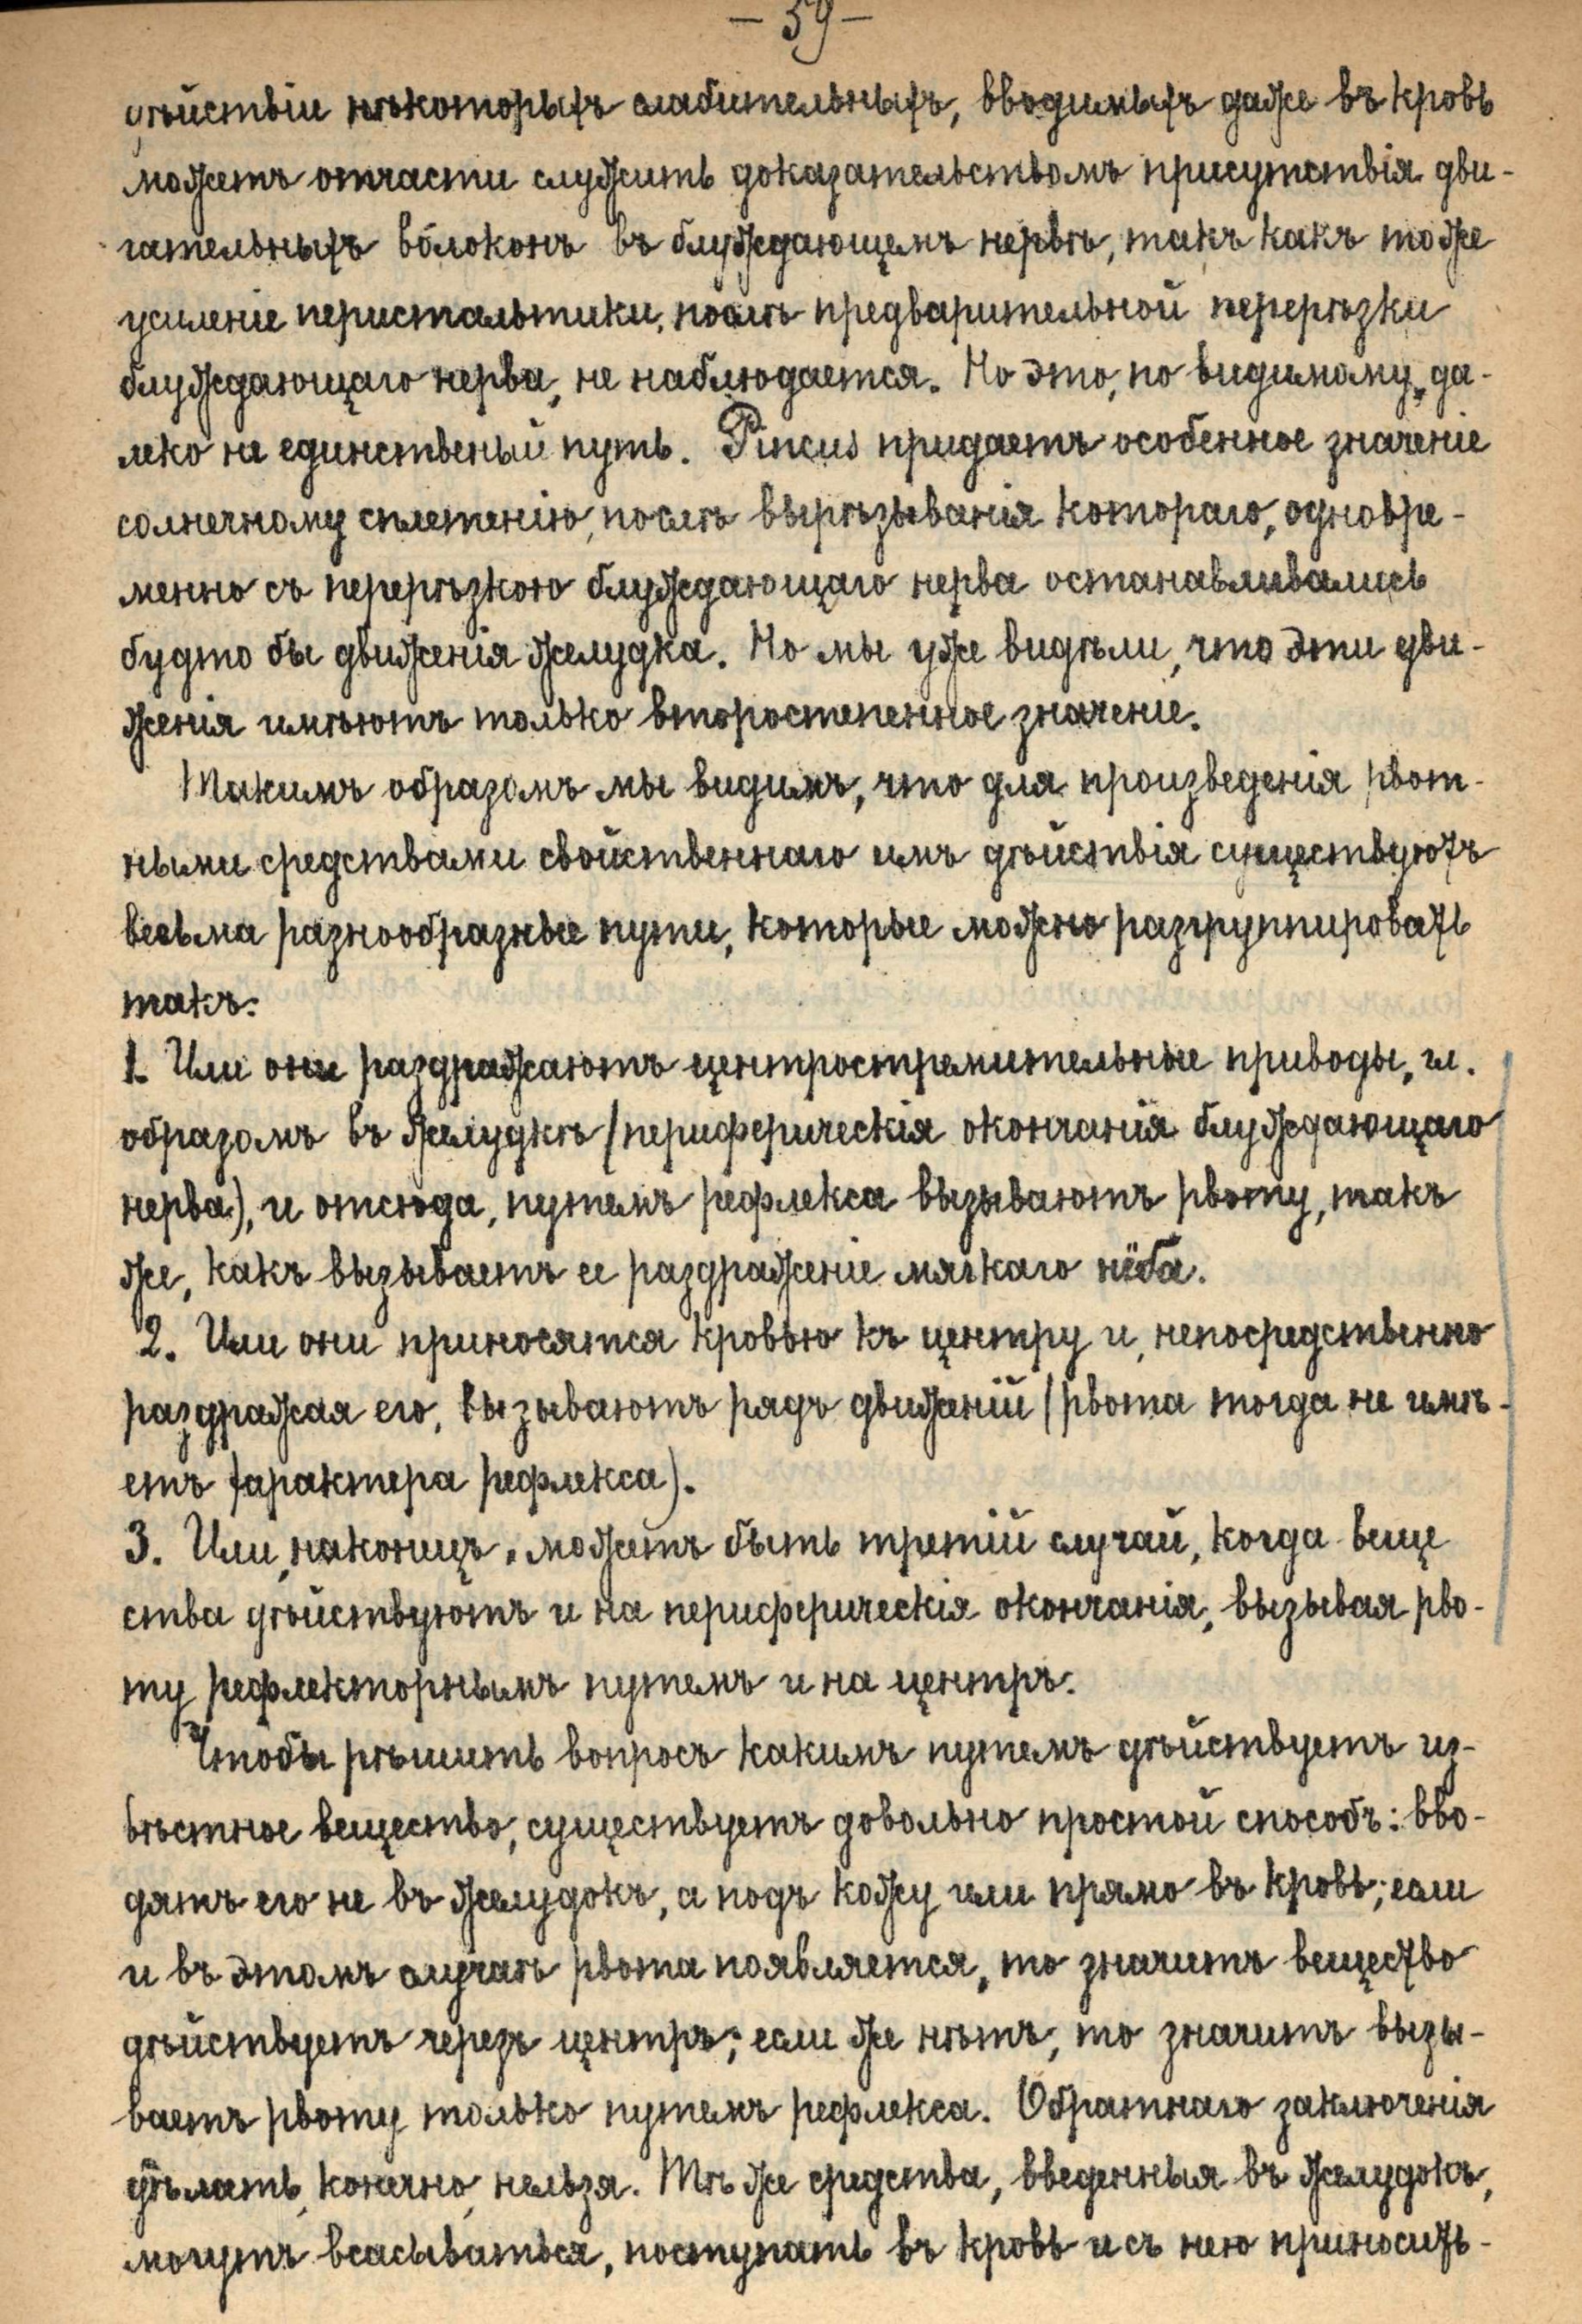 — 59 —
дѣйствіи нѣкоторыхъ слабительныхъ, вводимыхъ даже въ кровь
можетъ отчасти служить доказательствомъ присутствія дви-
гательныхъ волоконъ въ блуждающемъ нервѣ, такъ какъ тоже
усиленіе перистальтики, послѣ предварительной перерѣзки
блуждающаго нерва, не наблюдается. Но это, по видимому, да-
леко не единственый путь. Pincus придаетъ особенное значеніе
солнечному сплетенію, послѣ вырѣзыванія котораго, одновре-
менно съ перерѣзкою блуждающаго нерва останавливались
будто бы движенія желудка. Но мы уже видѣли, что эти дви-
женія имѣютъ только второстепенное значеніе.
Такимъ образомъ мы видимъ, что для произведенія рвот-
ными средствами свойственнаго имъ дѣйствія существуютъ
весьма разнообразные пути, которые можно разгруппировать
такъ:
1. Или они раздражаютъ центростремительные приводы, гл.
образомъ въ желудкѣ (периферическія окончанія блуждающаго
нерва), и отсюда, путемъ рефлекса вызываютъ рвоту, такъ
же, какъ вызываетъ ее раздраженіе мягкаго нёба.
2. Или они приносятся кровью къ центру и, непосредственно
раздражая его, вызываютъ рядъ движаній (рвота тогда не имѣ-
етъ характера рефлекса).
3. Или, наконецъ, можетъ быть третій случай, когда веще
ства дѣйствуютъ и на периферическія окончанія, вызывая рво-
ту рефлекторнымъ путемъ и на центръ.
Чтобы рѣшить вопросъ какимъ путемъ дѣйствуетъ из-
вѣстное вещество, существуетъ довольно простой способъ: вво-
дятъ его не въ желудокъ, а подъ кожу или прямо въ кровь; если
и въ этомъ случаѣ рвота появляется, то значитъ вещество
дѣйствуетъ черезъ центръ; если же нѣтъ, то значитъ вызы-
ваетъ рвоту только путемъ рефлекса. Обратнаго заключенія
дѣлать, конечно, нельзя. Тѣ же средства, введенныя въ желудокъ,
могутъ всасываться, поступать въ кровь и съ нею приносить-